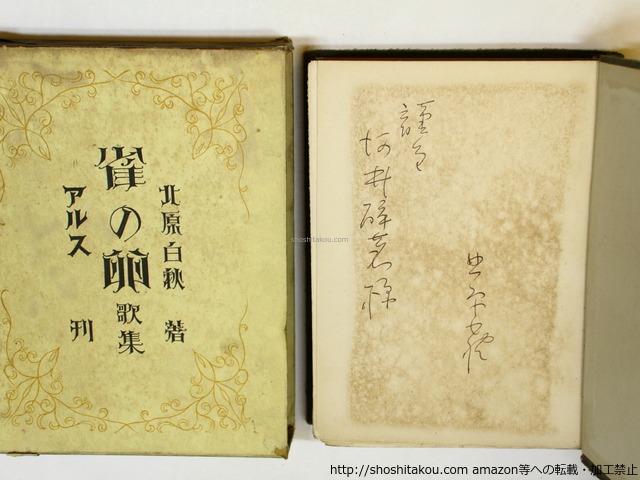 北原白秋 著
雀の卵 歌集
アルス 刊
謹呈
河井酔茗様
北原白秋
shoshitakou.com
http://shoshitakou.com amazon等への転載・加工禁止